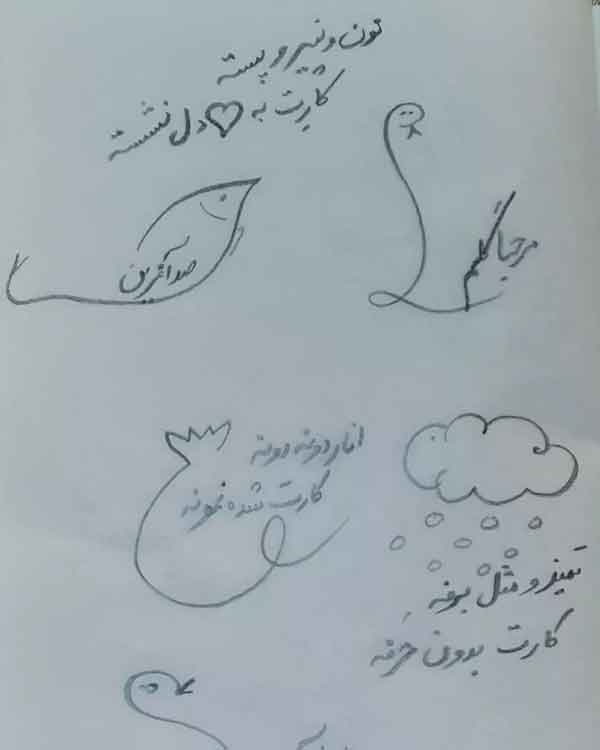 نون و پنیر و پسته
کارت به دل نشسته
مرحبا گلم
صد آفرین
انار دونه دونه
کارت شده نمونه
تمیز و مثل برفه
کارت بدون حرفه